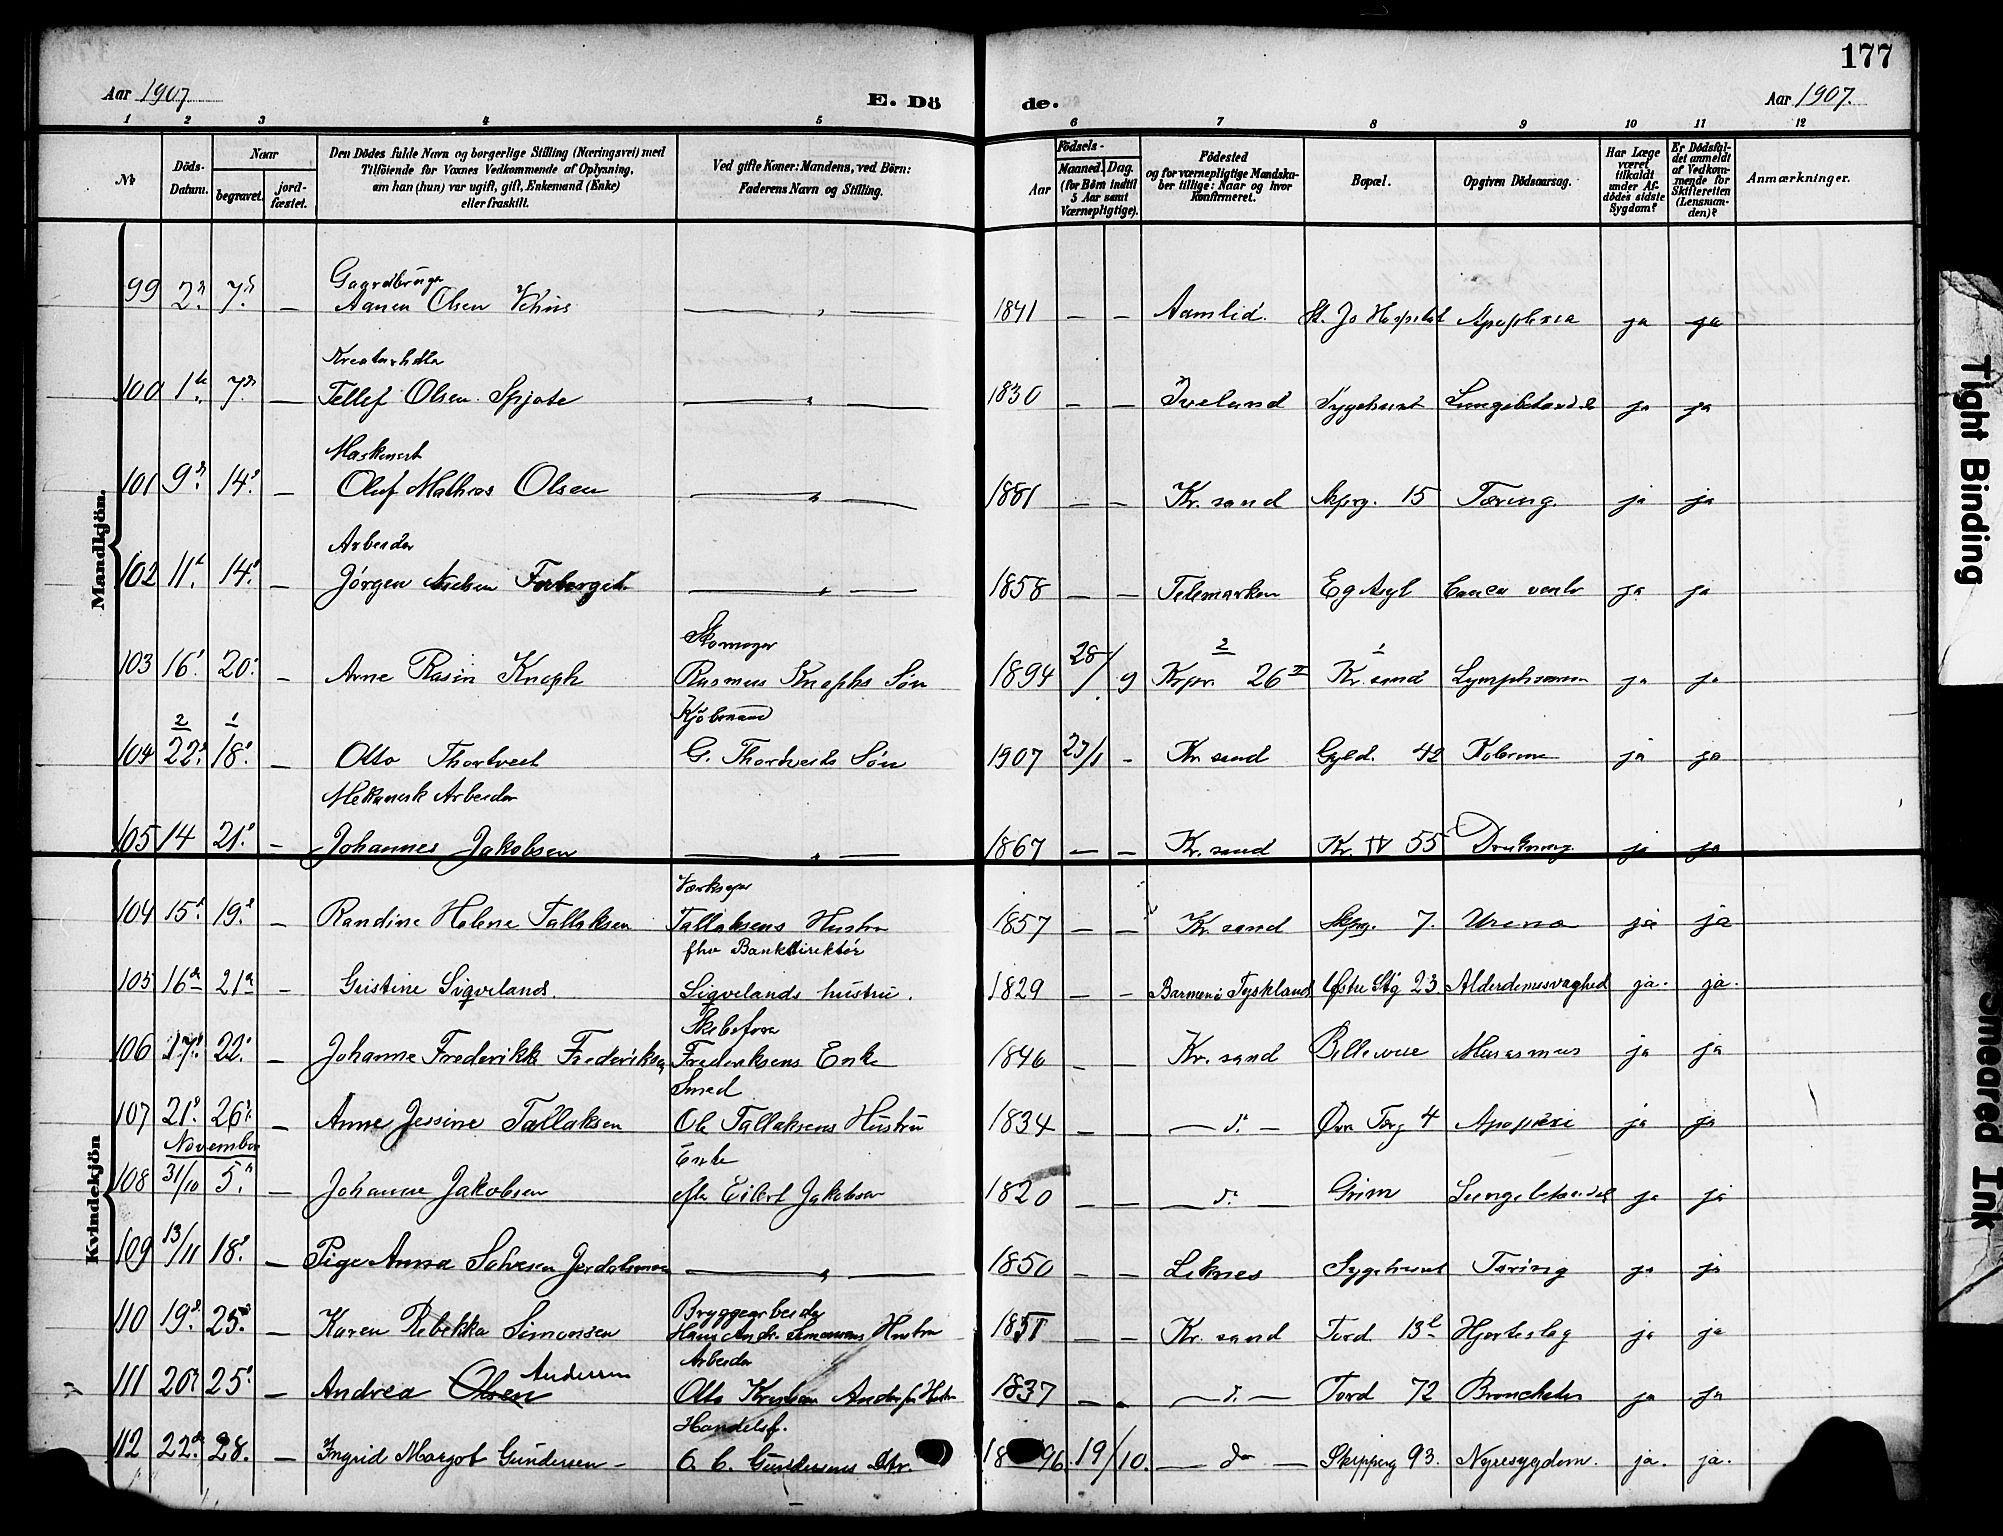 177
Aar 1907.
E. Dö
de.
Aar 1907.
1 2 3 4 5 6 7 8 9 10 11 12
No
Döds-
Datum.
Naar
begravet.
jord-
fæstet.
Den Dödes fulde Navn og borgerlige Stilling (Næringsvei) med
Tilföiende for Voxnes Vedkommende af Oplysning,
om han (hun) var ugift, gift, Enkemand (Enke)
eller fraskilt.
Ved gifte Koner: Mandens, ved Börn:
Faderens Navn og Stilling.
Födsels-
Aar
Maaned. Dag.
(for Börn indtil
5 Aar samt
Værnepligtige).
Födested
og for værnepligtige Mandska-
ber tillige: Naar og hvor
Konfirmeret.
Bopæl.
Opgiven Dödsaarsag.
Har Læge
været
tilkaldt
under Af-
dödes sidste
Sygdom?
Er Dödsfal-
det anmeldt
af Vedkom-
mende for
Skifteretten
(Lensman-
den)?
Anmærkninger.
Mandkjön.
Gaardbruger
99 2 7 — Aanen Olsen — 1841 — — Aamlid. St. Jo Hospital Apoplexia ja ja
100 1 7 — Tellef Olsen — 1830 — — Iveland Sygehuset ja ja
Maskinist
101 9 14 — Oluf Mathias Olsen — 1881 — — Kr.sand Skprg. 15 Tæring. ja ja
Arbeider
102 11 14 — Jörgen — 1858 — — Telemarken Eg Asyl ja ja
Skomager
103 16 20 — Arne Knaph Rasmus Knaphs Sön 1894 28/9 2 Krpr. 26 1 Kr.sand ja ja
Kjöbmand
2 1
104 22 18 — Otto Thortvedt G. Thortvedts Sön 1907 23/1 - Kr.sand Gyld. 42 Kolerine ja ja
Mekanisk Arbeider
105 14 21 — Johannes Jakobsen — 1867 — — Kr.sand Kr. IV 55 Drukning ja ja
Kvindekjön
104 15 19 — Randine Helene Tallaksen Tallaksens Hustru 1857 — — Kr.sand Skpg. 7. ja ja
fhv Bankdirektör
105 16 21 — Gristine Sigveland. Sigvelands hustru. 1829 — — Barmen i Tyskland Østre Stg 23 Alderdomssvaghed ja. ja.
106 17 22 — Johanne Frederikke Frederiksen Frederiksens Enke 1846 — — Kr.sand Bellevue Marasmus ja ja
Smed
107 21 26 — Anne Jessine Tallaksen Ole Tallaksens Hustru 1834 — — — d. — Øvr Torg 4 Apoplexi ja ja
November
Enke
108 31/10 5 — Johanne Jakobsen efter Eilert Jakobsen 1820 — — — d. — Grim ja ja
109 13/11 18 — Pige Anna Salvesen — 1850 — — Liknes Sygehuset Tæring ja ja
Bryggearbeider
110 19 25 — Karen Rebekka Simonsen Hans Andr. Simonsens Hustru 1851 — — Kr.sand Tord 13 Hjerteslag ja ja
Arbeider
Andersen
111 20 25 — Andrea Olsen Otto Kristian 1837 — — — d. — Tord 72 ja ja
Handelsf.
112 22 28. — Ingrid Margot Gundersen — O. C. Gundersens Dtr. 1896 19/10. — do — Skipperg 93. Nyresygdom. ja. ja.
Tight Binding
Smeared Ink